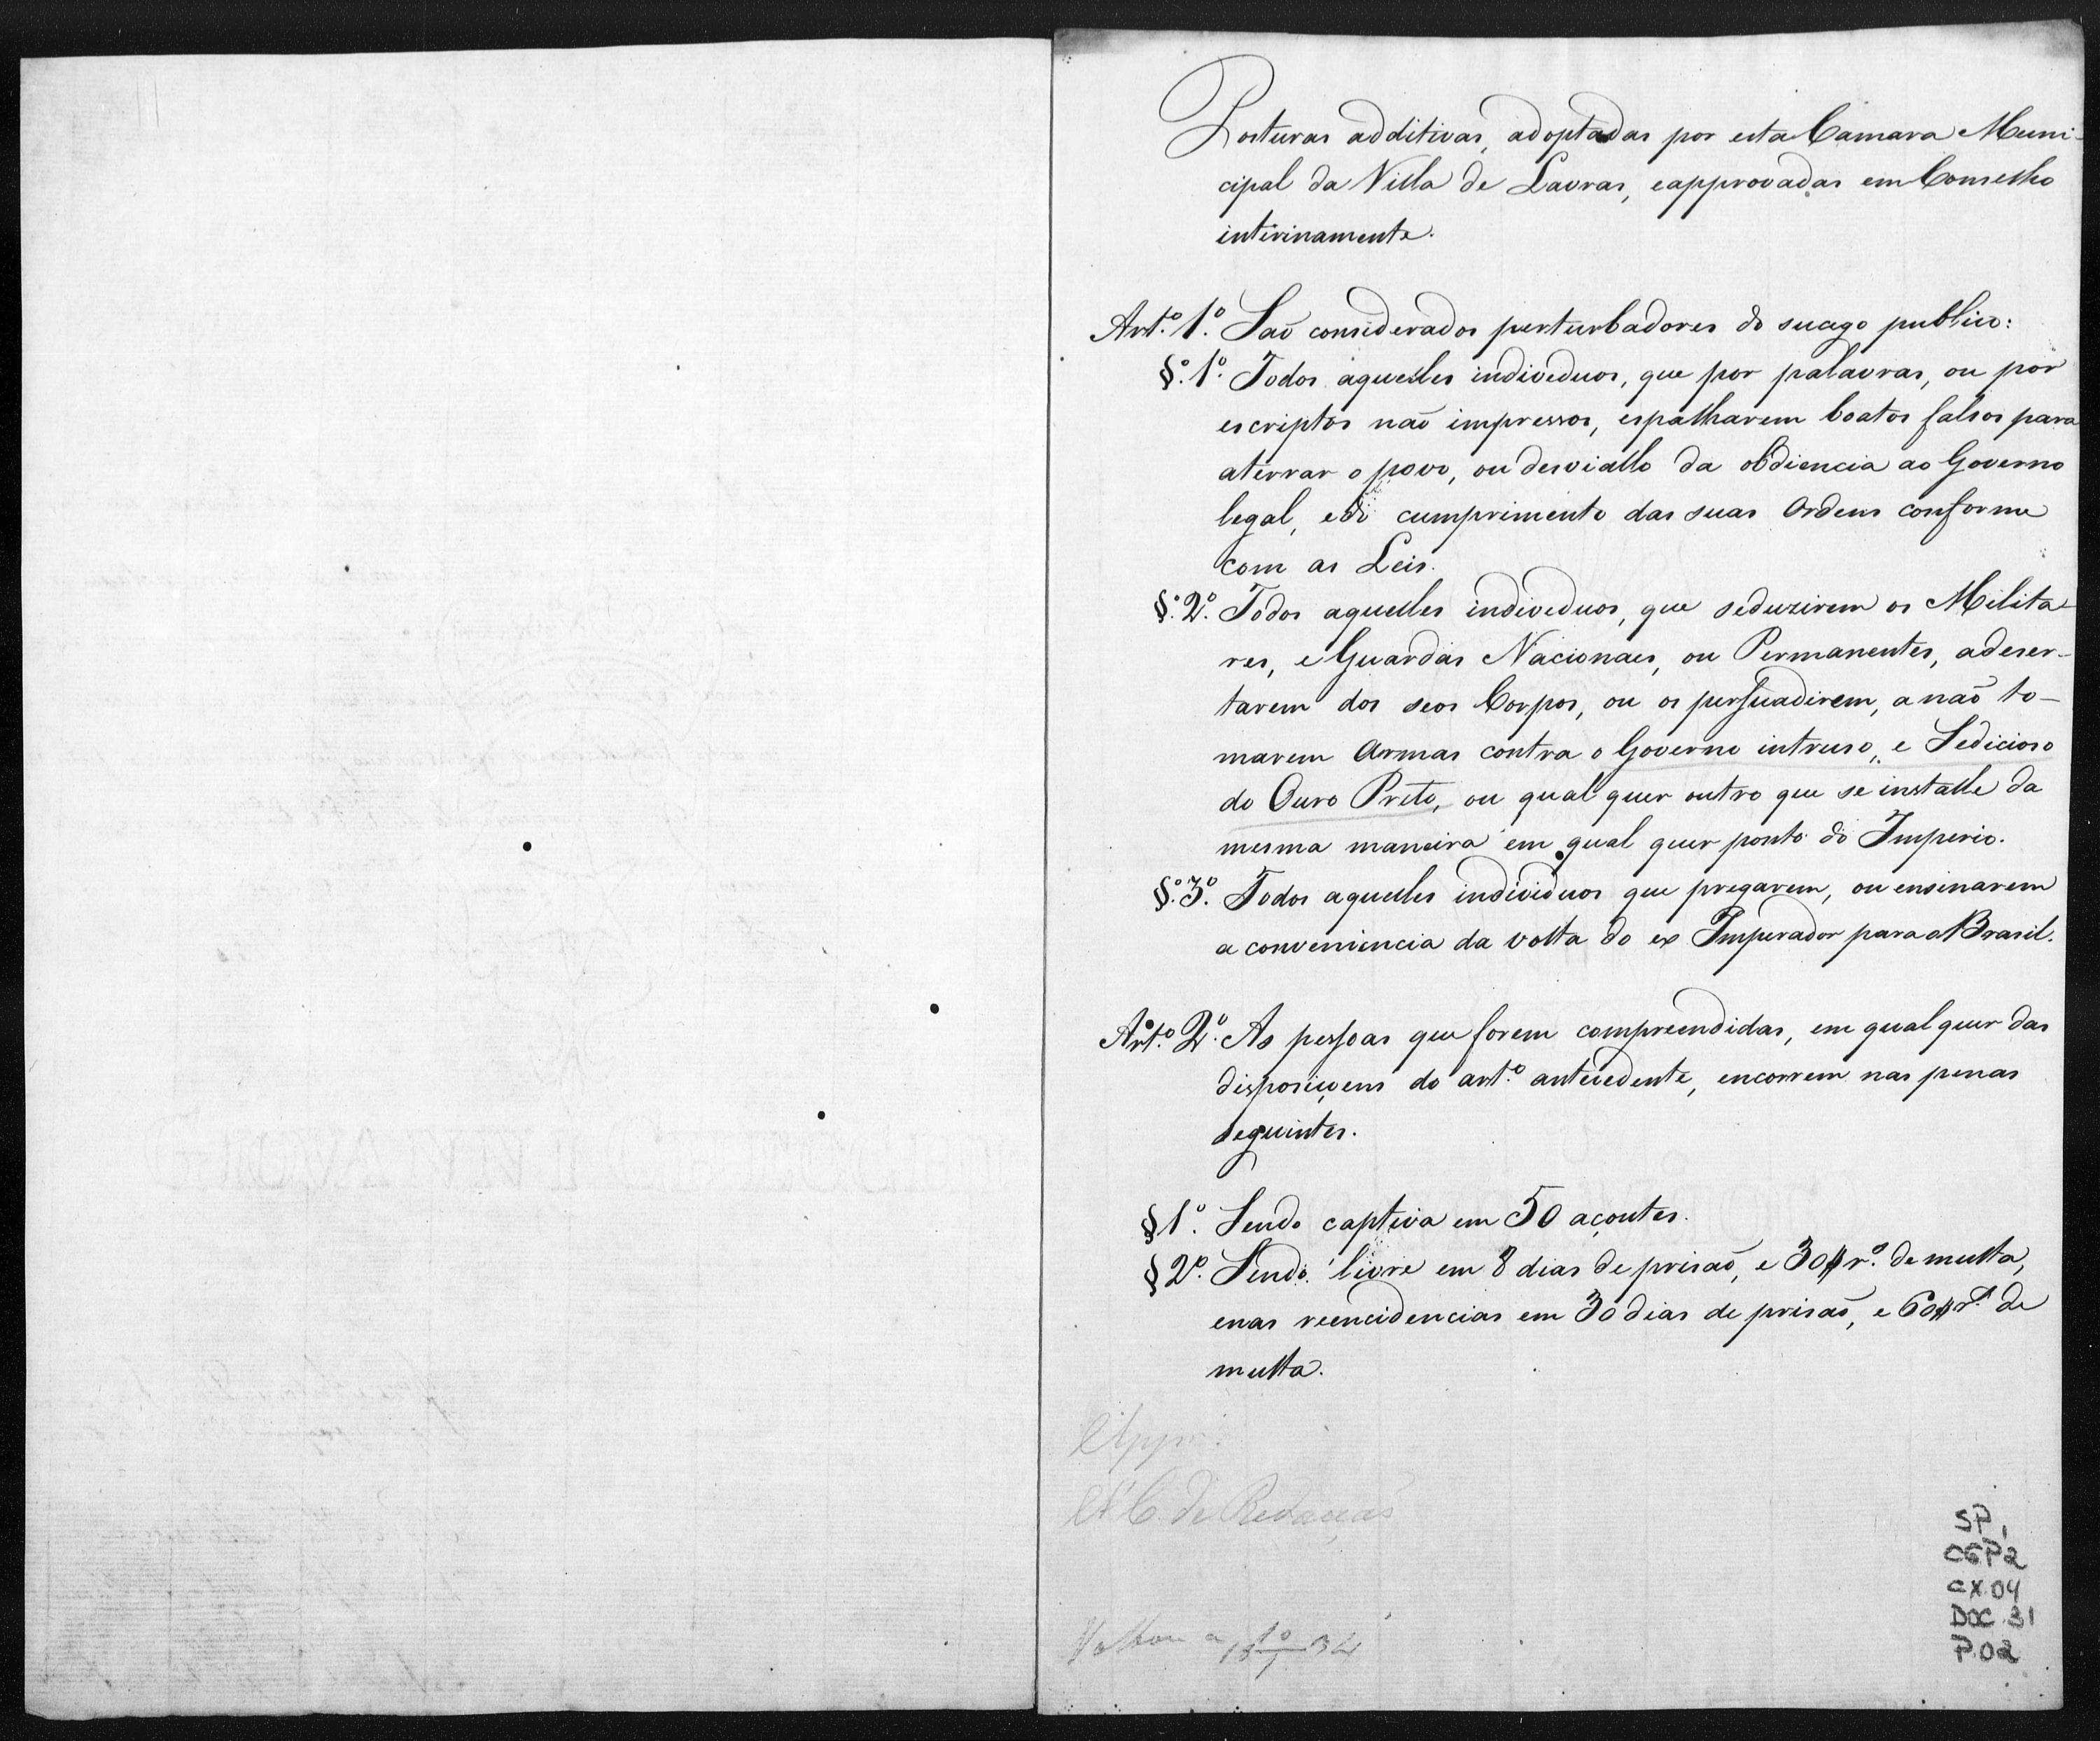 Posturas additivas, adoptadas por esta Camara Muni-
cipal da Villa de Lavras, eapprovadas em Conselho
interinamente.
Art.º 1.º Saõ considerados perturbadores do sucego publico:
§.º 1.º Todos aquelles individuos, que por palavras, ou por
escriptos naõ impressos, espalharem boatos falsos para
aterrar o povo, ou desviallo da obdiencia ao Governo
legal, edo cumprimento das suas Ordens conforme
com as Leis.
§.º 2.º Todos aquelles individuos, que seduzirem os Milita-
res, e Guardas Nacionaes, ou Permanentes, adeser-
tarem dos seos Corpos, ou os persuadirem, a naõ to-
marem Armas contra o Governo intruso, e Sedicioso
do Ouro Preto, ou qual quer outro que se installe da
mesma maneira em qual quer ponto do Imperio.
§.º 3.º Todos aquelles individuos que pregarem, ou ensinarem
a conveniencia da volta do ex Imperador para o Brasil.
Art.º 2.º As pessoas que forem comprendidas, em qual quer das
disposiçoens do art.º antecedente, encorrem nas penas
seguintes.
§ 1.º Sendo captiva em 50 açoutes.
§ 2.º Sendo livre em 8 dias de prisaõ, e 30$r.º de multa,
enas reencidencias em 30 dias de prisaõ, e 60$r.º de
multa.
A' C. de Redacçaõ
SP 1
CGP2
CX.04
DOC.31
P.02